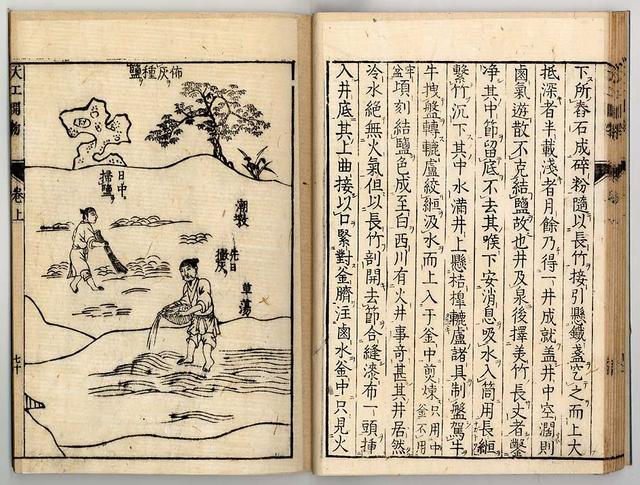 下所舂石成碎粉隨以長竹接引懸鐵盞空之而上大
抵深者半載淺者月餘乃得一井成就盖井中空濶則
鹵氣遊散不克結鹽故也井及泉後擇美竹長丈者鑿
净其中節留底不去其喉下安消息吸水入筒用長縆
繫竹沉下其中水滿井上懸桔橰轆轤諸具制盤駕牛
牛拽盤轉轆轤絞縆汲水而上入于釜中煎煉只用中釜不用
牢盆頃刻結鹽色成至白西川有火井事奇甚其井居然
冷水絶無火氣但以長竹剖開去節合縫漆布一頭插
入井底其上曲接以口緊對釜臍注鹵水釜中只見火
佈灰種鹽
潮墩
先日撒灰
草蕩
日中掃鹽
天工開物
卷上
七十